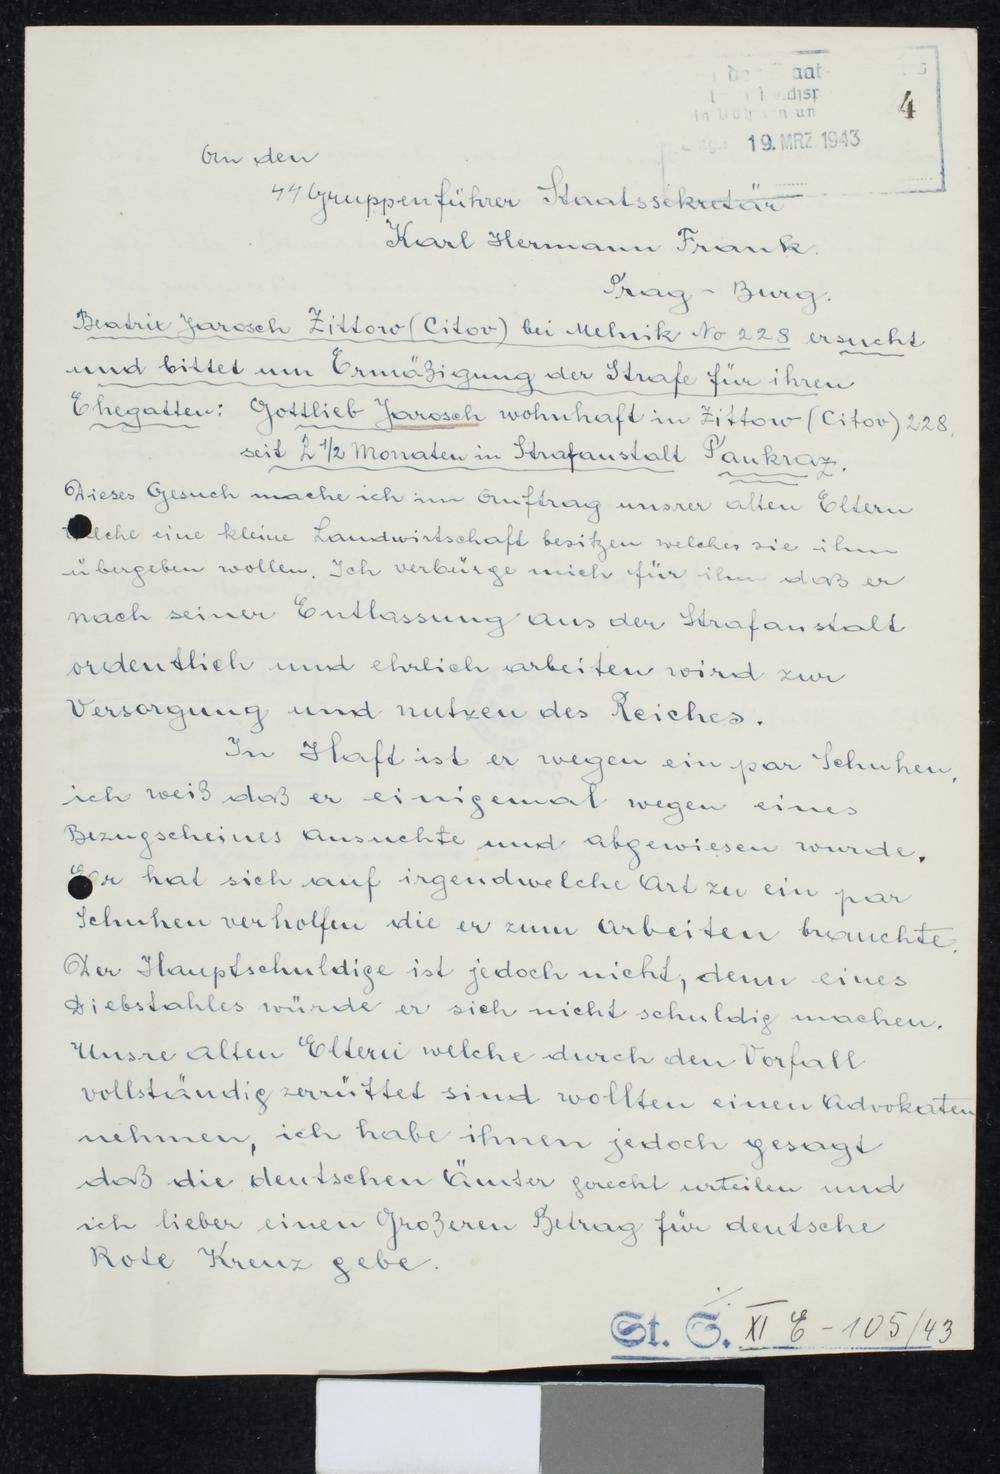 4
19. MRZ 1943
An den
SS Gruppenführer Staatssekretär
Karl Hermann Frank.
Prag - Burg.
Beatrix Jarosch Zittow (Citov) bei Melnik No 228 ersucht
und bittet um Ermäßigung der Strafe für ihren
Ehegatten: Gottlieb Jarosch wohnhaft in Zittow (Citov) 228.
seit 2 1/2 Monaten in Strafanstalt Pankraz.
Dieses Gesuch mache ich im Auftrag unsrer alten Eltern
welche eine kleine Landwirtschaft besitzen welches sie ihm
übergeben wollen. Ich verbürge mich für ihm daß er
nach seiner Entlassung aus der Strafanstalt
ordentlich und ehrlich arbeiten wird zur
Versorgung und nutzen des Reiches.
In Haft ist er wegen ein par Schuhen,
ich weiß daß er einigemal wegen eines
Bezugscheines ansuchte und abgewiesen wurde.
Er hat sich auf irgendwelche Art zu ein par
Schuhen verholfen die er zum arbeiten brauchte.
Der Hauptschuldige ist jedoch nicht, denn eines
Diebstahles würde er sich nicht schuldig machen.
Unsre alten Eltern welche durch den Vorfall
vollständig zerrüttet sind wollten einen Advokaten
nehmen, ich habe ihnen jedoch gesagt
daß die deutschen Ämter gerecht urteilen und
ich lieber einen Großeren Betrag für deutsche
Rote Kreuz gebe.
./.
St. S. XI E - 105/43